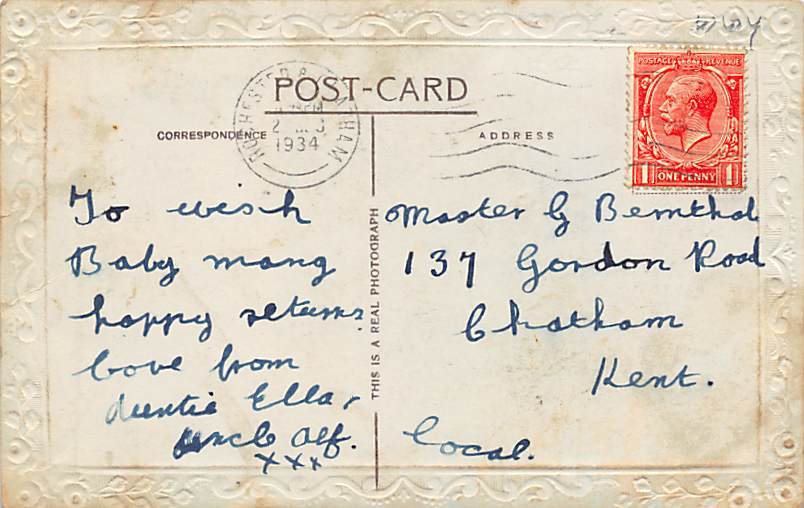 POST-CARD
CORRESPONDENCE
ADDRESS
ROCHESTER & CHATHAM
1934
POSTAGE REVENUE
1 ONE PENNY 1
To wish
Baby many
happy returns
Love from
Auntie Ella,
Uncle Alf.
xxx
THIS IS A REAL PHOTOGRAPH
Master G Bemthal
137 Gordon Road
Chatham
Kent.
Local.